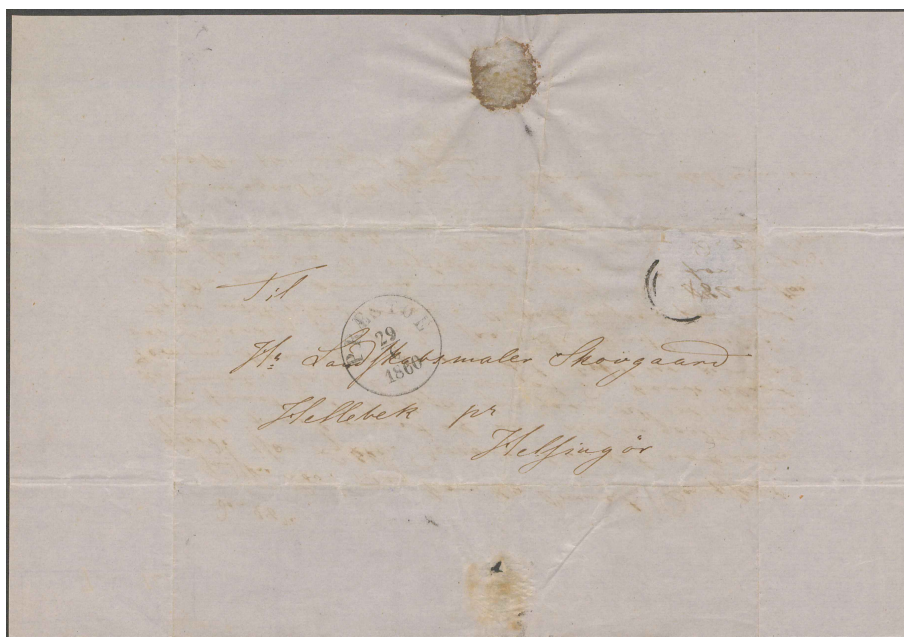 Til
PRESTOE
29
1860
Hr Landskabsmaler Skovgaard
Hellebek pr
Helsingör